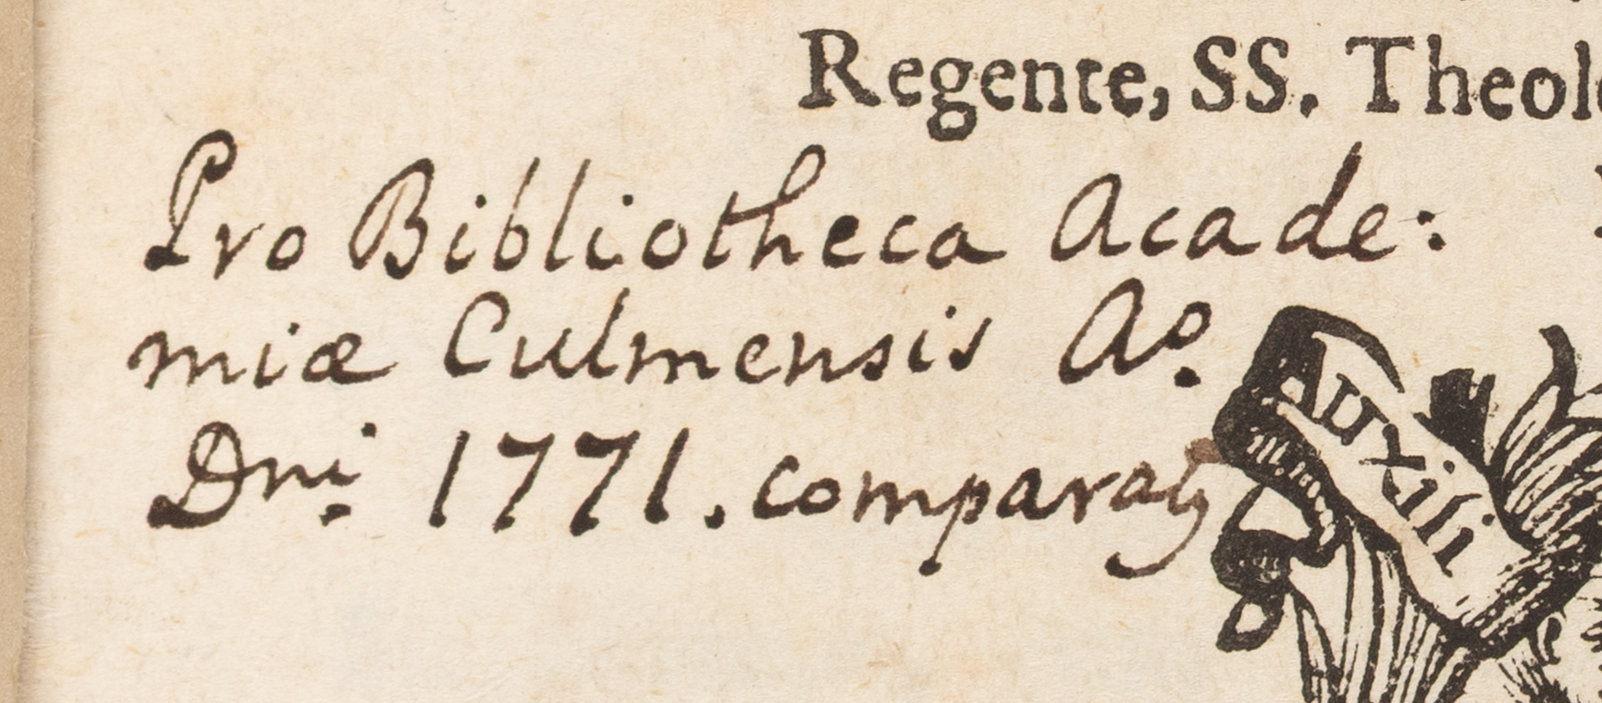 Regente, SS. Theol
Pro Bibliotheca Acade:
miæ Culmensis Aº.
Dni 1771. comparatꝯ
Auxili